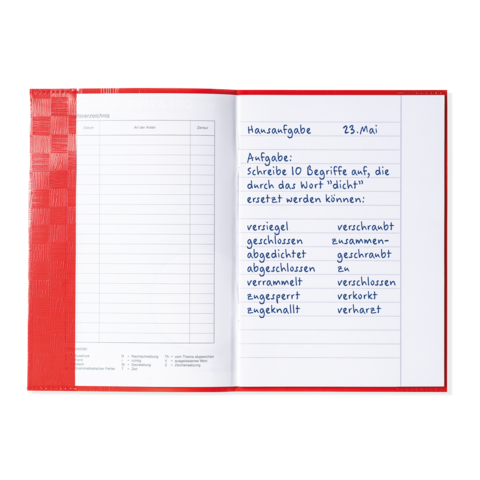 Datum Art der Arbeit
Hausaufgabe 23. Mai
Aufgabe:
Schreibe 10 Begriffe auf, die
durch das Wort "dicht"
ersetzt werden können:
versiegel verschraubt
geschlossen zusammen-
abgedichtet geschraubt
abgeschlossen zu
verrammelt verschlossen
zugesperrt verkorkt
zugeknallt verharzt
R = Rechtschreibung
Z = Zeichensetzung
T = Zeit